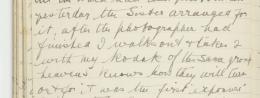 yesterday the Sister arranged for
it, after the photographer had
finished I walks out & takes 2
with my Kodak of the same group
heavens knows how they will turn
out for it was the first exposure